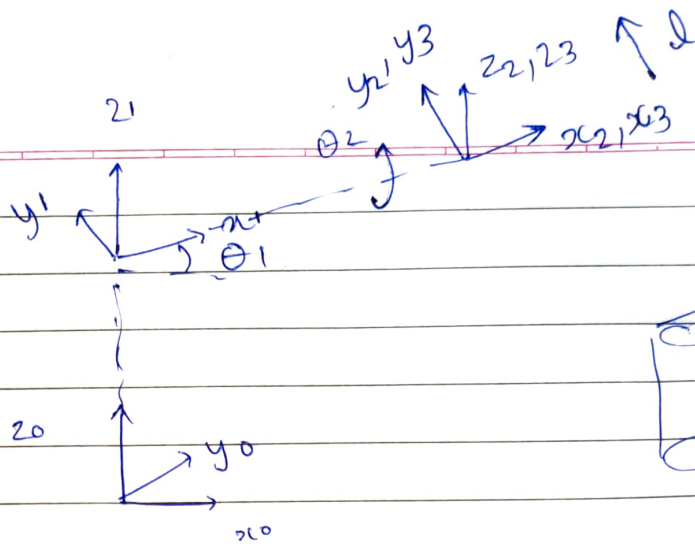 z1
y2' y3
z2, z3
l
θ2
x2, x3
y'
x1
θ1
z0
y0
x0